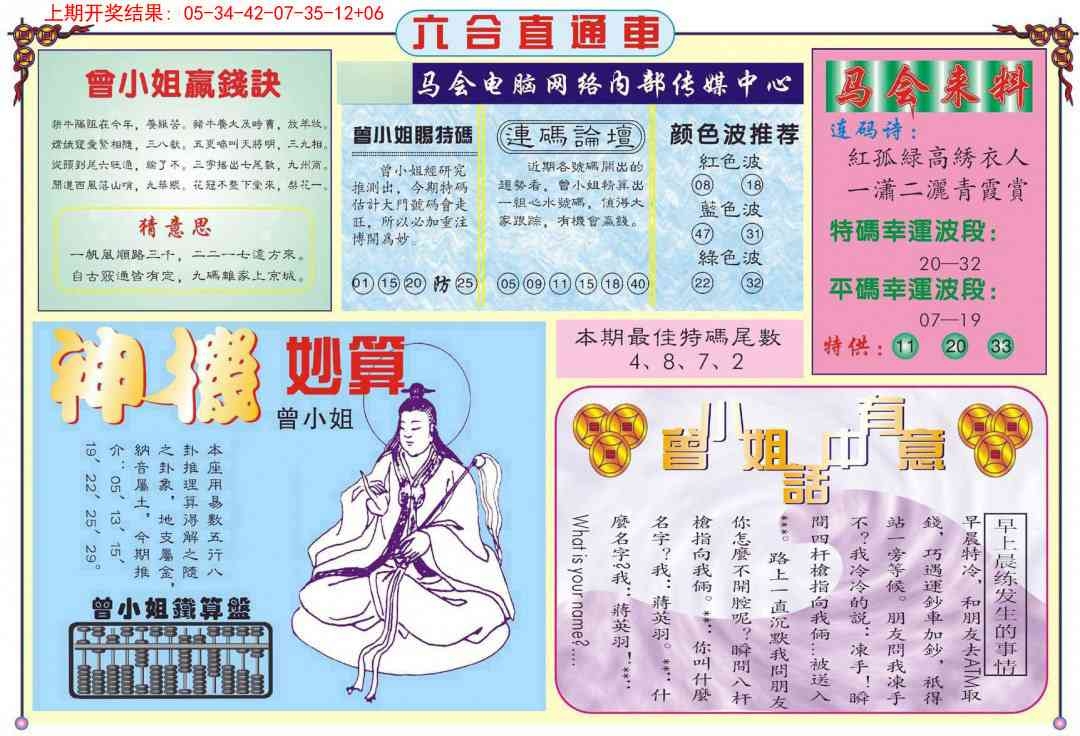 上期开奖结果：05-34-42-07-35-12+06
六合直通車
曾小姐贏錢訣
猜意思
一帆風順路三千，二二一七遠方來。
自古竅通皆有定，九碼離家上京城。
马会电脑网络内部传媒中心
曾小姐賜特碼
曾小姐經研究
推測出，今期特碼
估計大門號碼會走
旺，所以必加重注
博開為妙。
01 15 20 防 25
連碼論壇
近期各號碼開出的
趨勢看，曾小姐精算出
一組心水號碼，值得大
家跟踪，有機會贏錢。
05 09 11 15 18 40
颜色波推荐
紅色波
08 18
藍色波
47 31
綠色波
22 32
马会来料
连码诗：
紅孤緑高绣衣人
一瀟二灑青霞賞
特碼幸運波段：
20—32
平碼幸運波段：
07—19
特供：11 20 33
神機妙算
曾小姐
本座用易數五行八
卦推理算得解之隨
之卦象，地支屬金，
納音屬土，今期推
介：05、13、15、
19、22、25、29。
曾小姐鐵算盤
本期最佳特碼尾數
4、8、7、2
曾小姐話中有意
早上晨练发生的事情
早晨特冷，和朋友去ATM取
錢，巧遇運鈔車加鈔，祇得
站一旁等候。朋友問我凍手
不？我冷冷的説：凍手！瞬
間四杆槍指向我倆…被送入
***。路上一直沉默我問朋友
你怎麼不開腔呢？瞬間八杆
槍指向我倆。***：你叫什麼
名字？我：蔣英羽。***：什
麼名字？我：蔣英羽！***：
What is your name?....